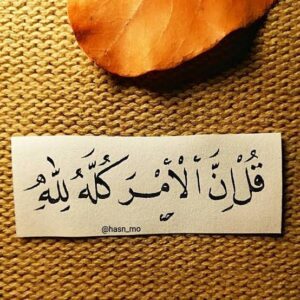 قُلْ إِنَّ ٱلْأَمْرَ كُلَّهُ لِلَّهِ
@hasn_mo